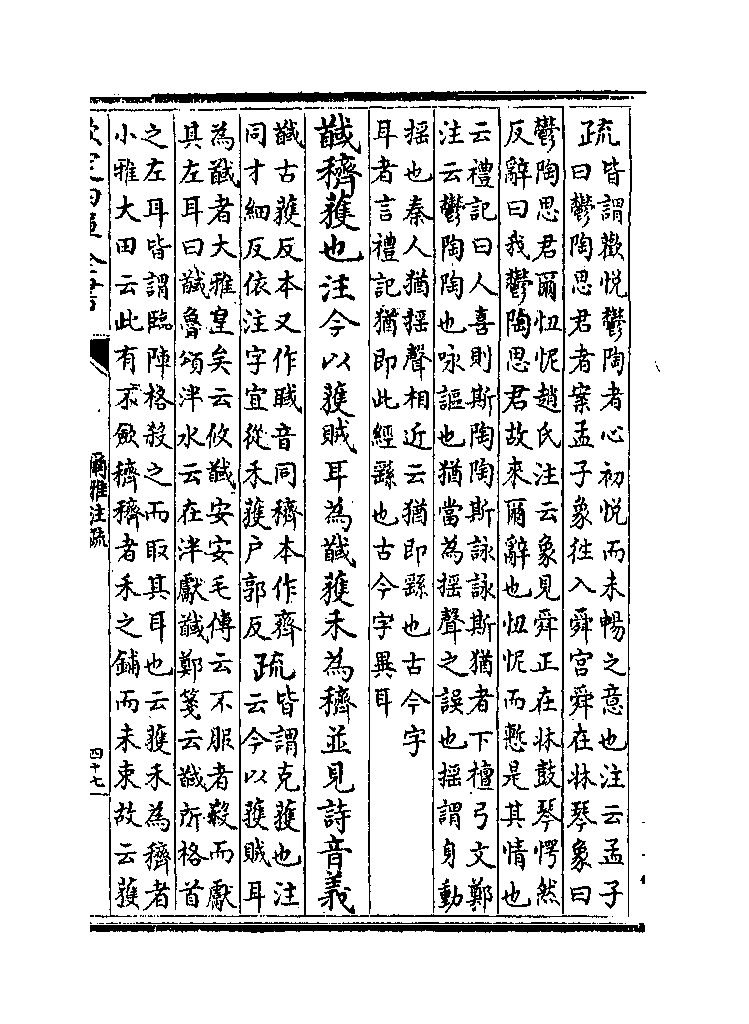 疏皆謂歡悦鬱陶者心初悦而未暢之意也注云孟子
曰鬱陶思君者案孟子象往入舜宫舜在牀琴象曰
鬱陶思君爾忸怩趙氏注云象見舜正在牀鼓琴愕然
反辭曰我鬱陶思君故來爾辭也忸怩而慙是其情也
云禮記曰人喜則斯陶陶斯詠詠斯猶者下檀弓文鄭
注云鬱陶陶也咏謳也猶當為摇聲之誤也摇謂身動
摇也秦人猶摇聲相近云猶即繇也古今字
耳者言禮記猶即此經繇也古今字異耳
馘穧獲也注今以獲賊耳為馘獲禾為穧並見詩音義
馘古獲反本又作聝音同穧本作齊
同才細反依注字宜從禾獲户郭反
疏皆謂克獲也注
云今以獲賊耳
為馘者大雅皇矣云攸馘安安毛傳云不服者殺而獻
其左耳曰馘魯頌泮水云在泮獻馘鄭箋云馘所格首
之左耳皆謂臨陣格殺之而取其耳也云獲禾為穧者
小雅大田云此有不斂穧穧者禾之鋪而未束故云獲
欽定四庫全書
爾雅注疏
四十七